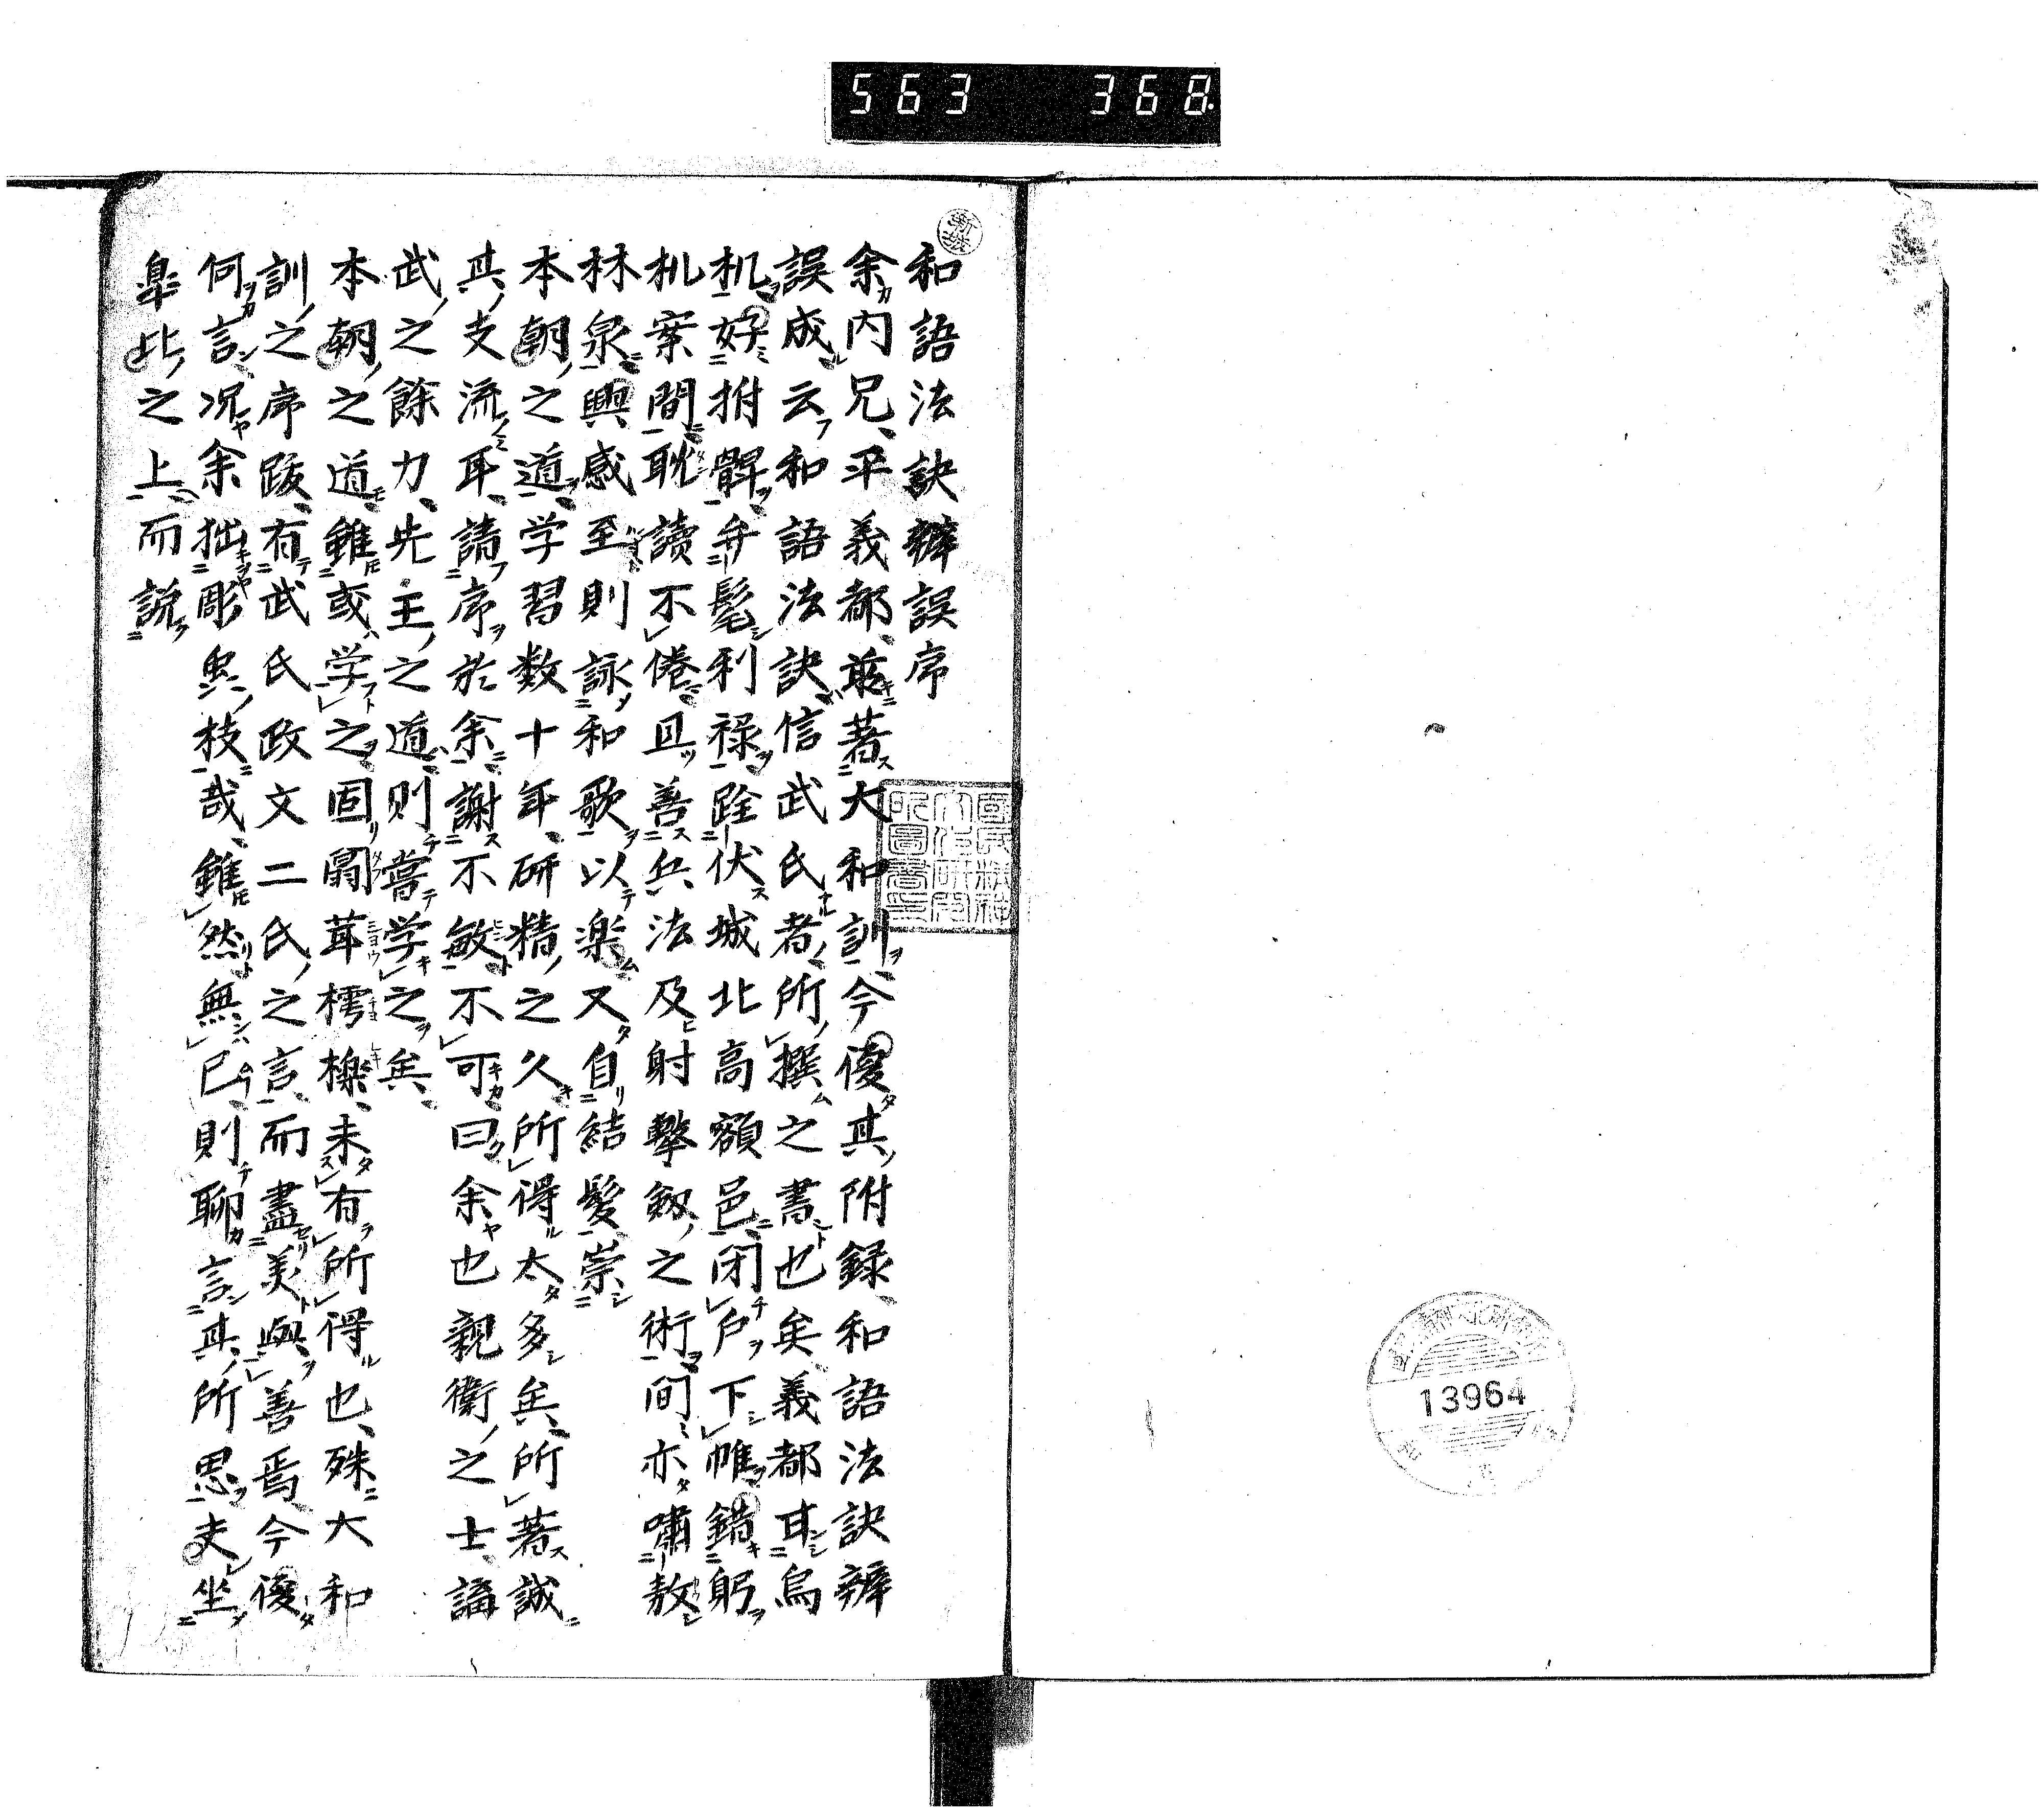 563 368
和語法訣辨誤序
余内兄平義都前著大和訓今復其附録和語法訣辨
誤成云和語法訣信武氏者所撰之書也矣義都耳烏
机好拊髀弁髦利禄跧伏城北高額邑閉戸下帷錯躬
机案間耽讀不倦且善兵法及射擊劔之術間亦嘯敖
林泉興感至則詠和歌以楽又自結髪崇
本朝之道学習数十年研精之久所得太多矣所著誠
其支流耳請序於余謝不敏不可曰余也親衛之士講
武之餘力先王之道則嘗学之矣
本朝之道雖或学之固闒茸樗櫟未有所得也殊大和
訓之序跋有武氏政文二氏之言而盡美與善焉今復
何言况余拙彫虫枝哉雖然無已則聊言其所思夫坐
皐比之上而説
13964